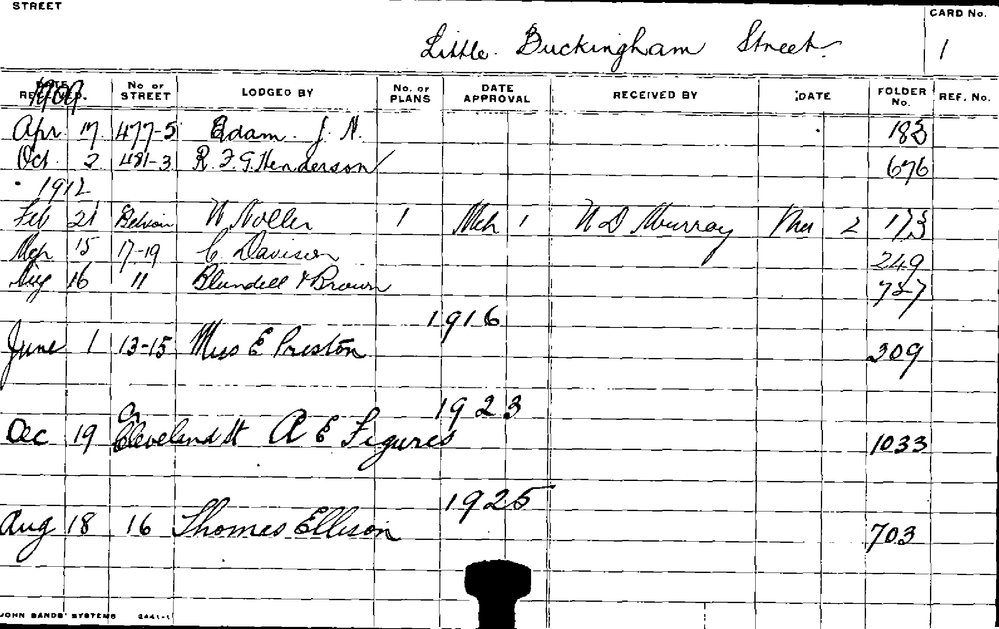 STREET
CARD No.
Little Buckingham Street
1
DATE RECEIVED. No OF STREET LODGED BY No. OF PLANS DATE APPROVAL RECEIVED BY DATE FOLDER No. REF. No.
1909
Apr 17 477-5 Edam J. N. 183
Oct. 2 481-3 R. F. G. Henderson 676
1912
Feb 21 W Noller 1 Mch 1 W D Murray Mar 2 173
Mch 15 17-19 C Davison 249
Aug 16 " Blundell & Brown 727
1916
June 1 13-15 Miss E Preston 309
1923
Cr
Dec 19 Cleveland St A E Figures 1033
1925
Aug 18 16 Thomas Ellison 703
JOHN SANDS' SYSTEMS 2441-1